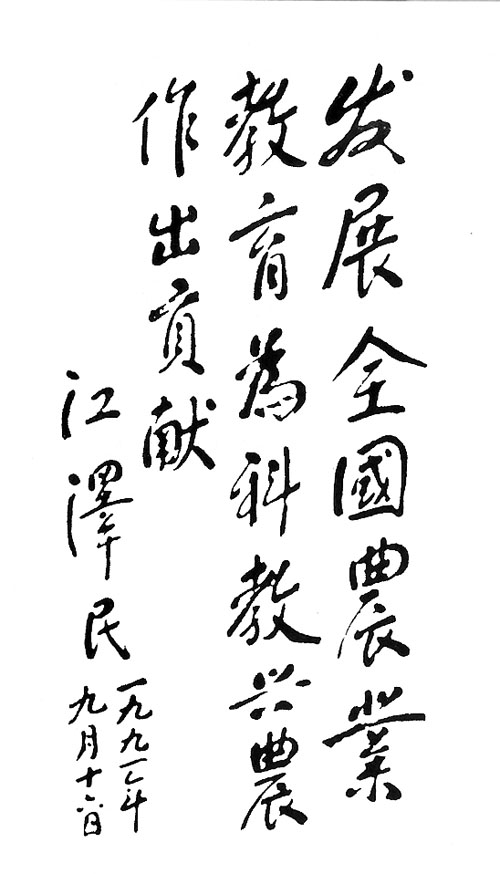 发展全國農業
教育為科教兴農
作出貢献
江澤民
一九九年
九月十六日